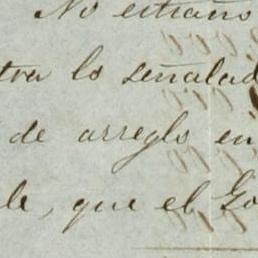 No estraño
tra lo señalad
de arreglo en
le, que el Go